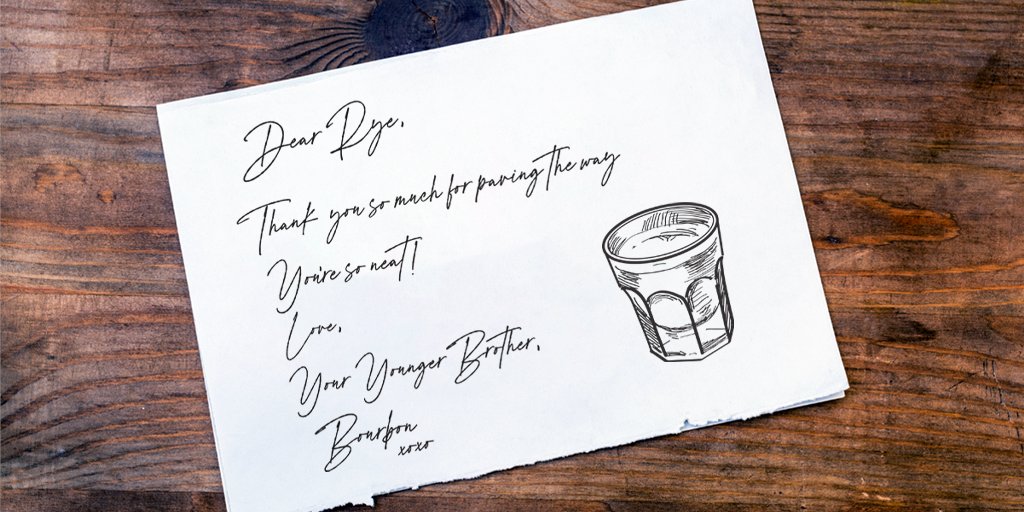 Dear Rye,
Thank you so much for paving the way
You're so neat!
Love,
Your Younger Brother,
Bourbon
xoxo